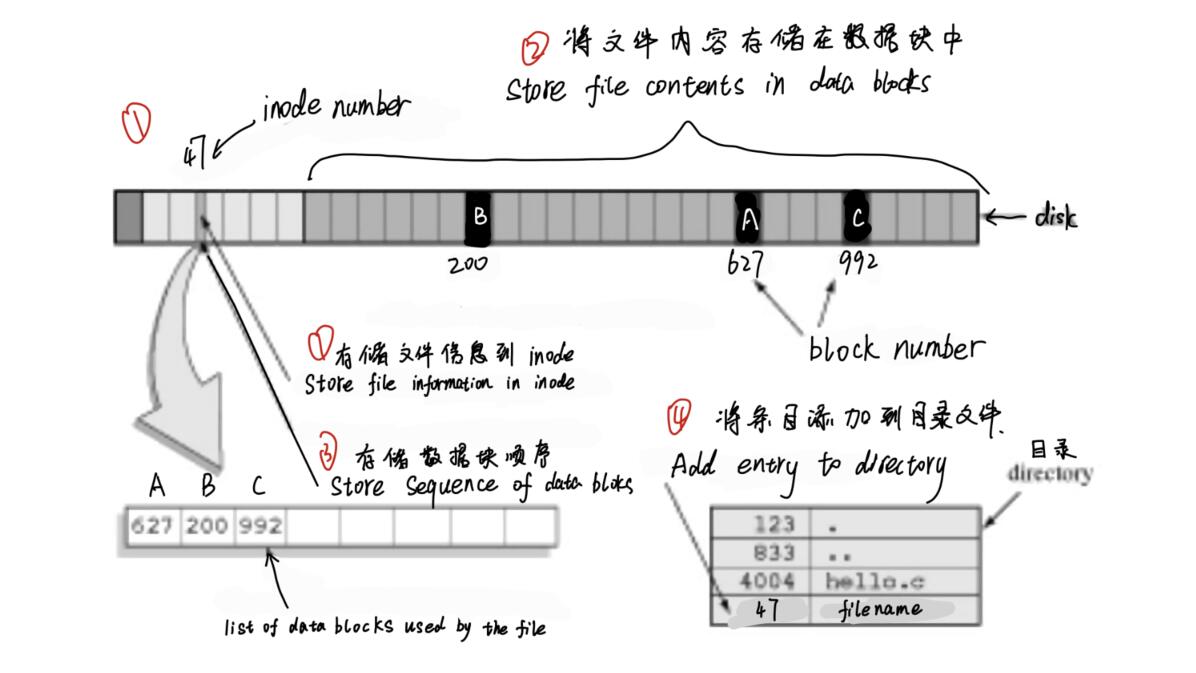 ② 将文件内容存储在数据块中
Store file contents in data blocks
①
inode number
47
B
A
C
disk
200
627
992
block number
① 存储文件信息到 inode
Store file information in inode
③ 存储数据块顺序
Store Sequence of data bloks
A B C
627 200 992
list of data blocks used by the file
④ 将条目添加到目录文件.
Add entry to directory
目录
directory
123 .
833 ..
4004 hello.c
47 filename